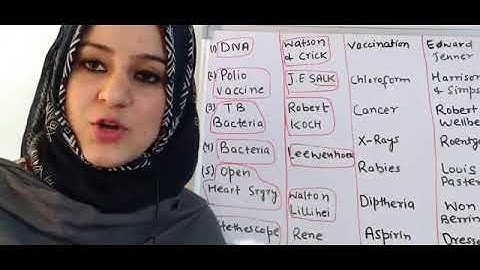 (1) DNA Watson & Crick Vaccination Edward Jenner
(2) Polio vaccine J.E SALK Chloroform Harrison & Simps
(3) TB Bacteria Robert KOCH Cancer Robert Weilbe
(4) Bacteria Leewenhoe X-Rays Roentg
(5) Open Heart Srgry Walton Lillihei Rabies Louis Paster
Diptheria Won Berrin
tethescope Rene Aspirin Dresse